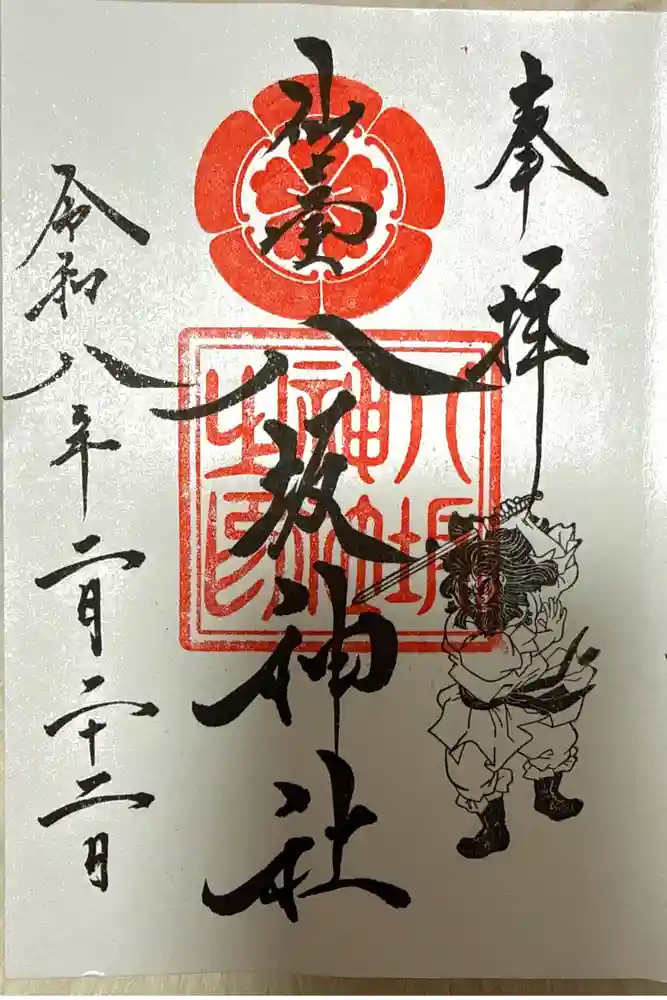 奉拝
仙臺
八坂神社
八坂
神社
之印
令和八年二月二十二日